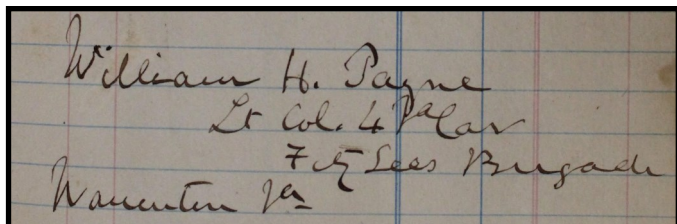 William H. Payne
Lt Col. 4 Va Cav
Fitz Lees Brigade
Warrenton Va